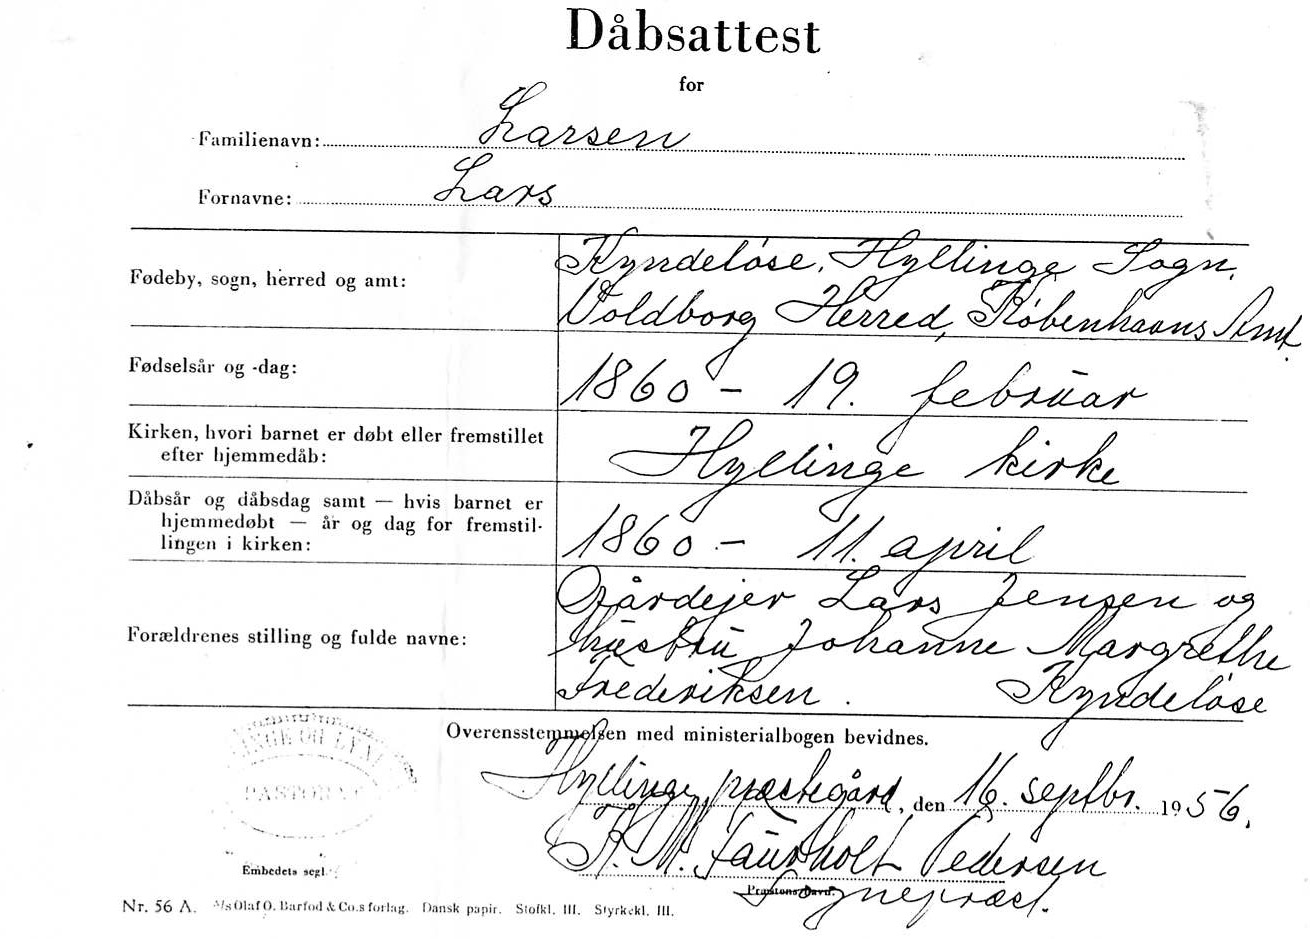 Dåbsattest
for
Familienavn: Larsen
Fornavne: Lars
Fødeby, sogn, herred og amt: Kyndeløse, Hyllinge Sogn,
Voldborg Herred, Københavns Amt.
Fødselsår og -dag: 1860 – 19. februar
Kirken, hvori barnet er døbt eller fremstillet
efter hjemmedåb: Hyllinge kirke
Dåbsår og dåbsdag samt — hvis barnet er
hjemmedøbt — år og dag for fremstil-
lingen i kirken: 1860 – 11. april
Gårdejer Lars Jensen og
Forældrenes stilling og fulde navne: hustru Johanne Margrethe
Frederiksen. Kyndeløse
Overensstemmelsen med ministerialbogen bevidnes.
Hyllinge præstegård, den 16. septbr. 1956.
K. M. Taurholt Pedersen
Præstens navn.
Sognepræst.
PASTORAT
Embedets segl.
Nr. 56 A. A/s Olaf O. Barfod & Co.s forlag. Dansk papir. Stofkl. III. Styrkekl. III.